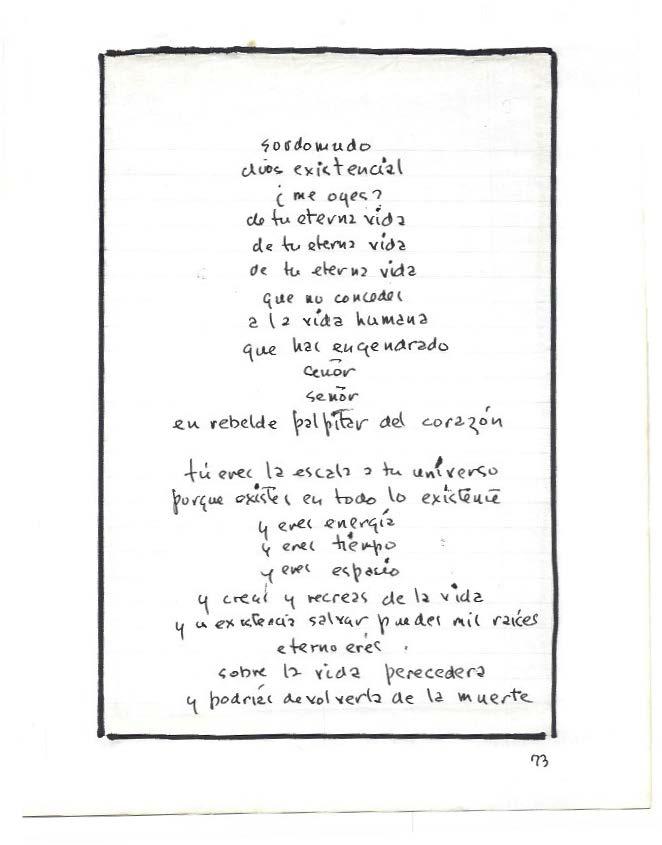 sordomudo
dios existencial
¿me oyes?
de tu eterna vida
de tu eterna vida
de tu eterna vida
que no concedes
a la vida humana
que has engendrado
señor
señor
en rebelde palpitar del corazón
tú eres la escala a tu universo
porque existes en todo lo existente
y eres energía
y eres tiempo
y eres espacio
y creas y recreas de la vida
y existencia salvar puedes mil raíces
eterno eres
sobre la vida perecedera
y podrías devolverla de la muerte
73